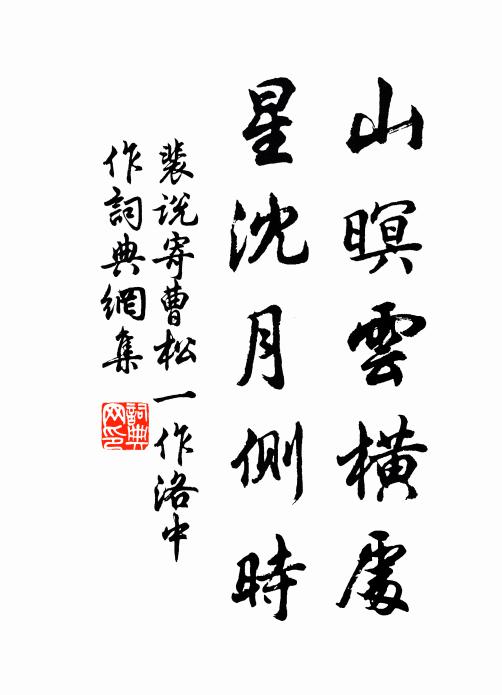 山暝雲橫處
星沈月側時
裴説寄曹松一作洛中
作詞典網集
詞典網印